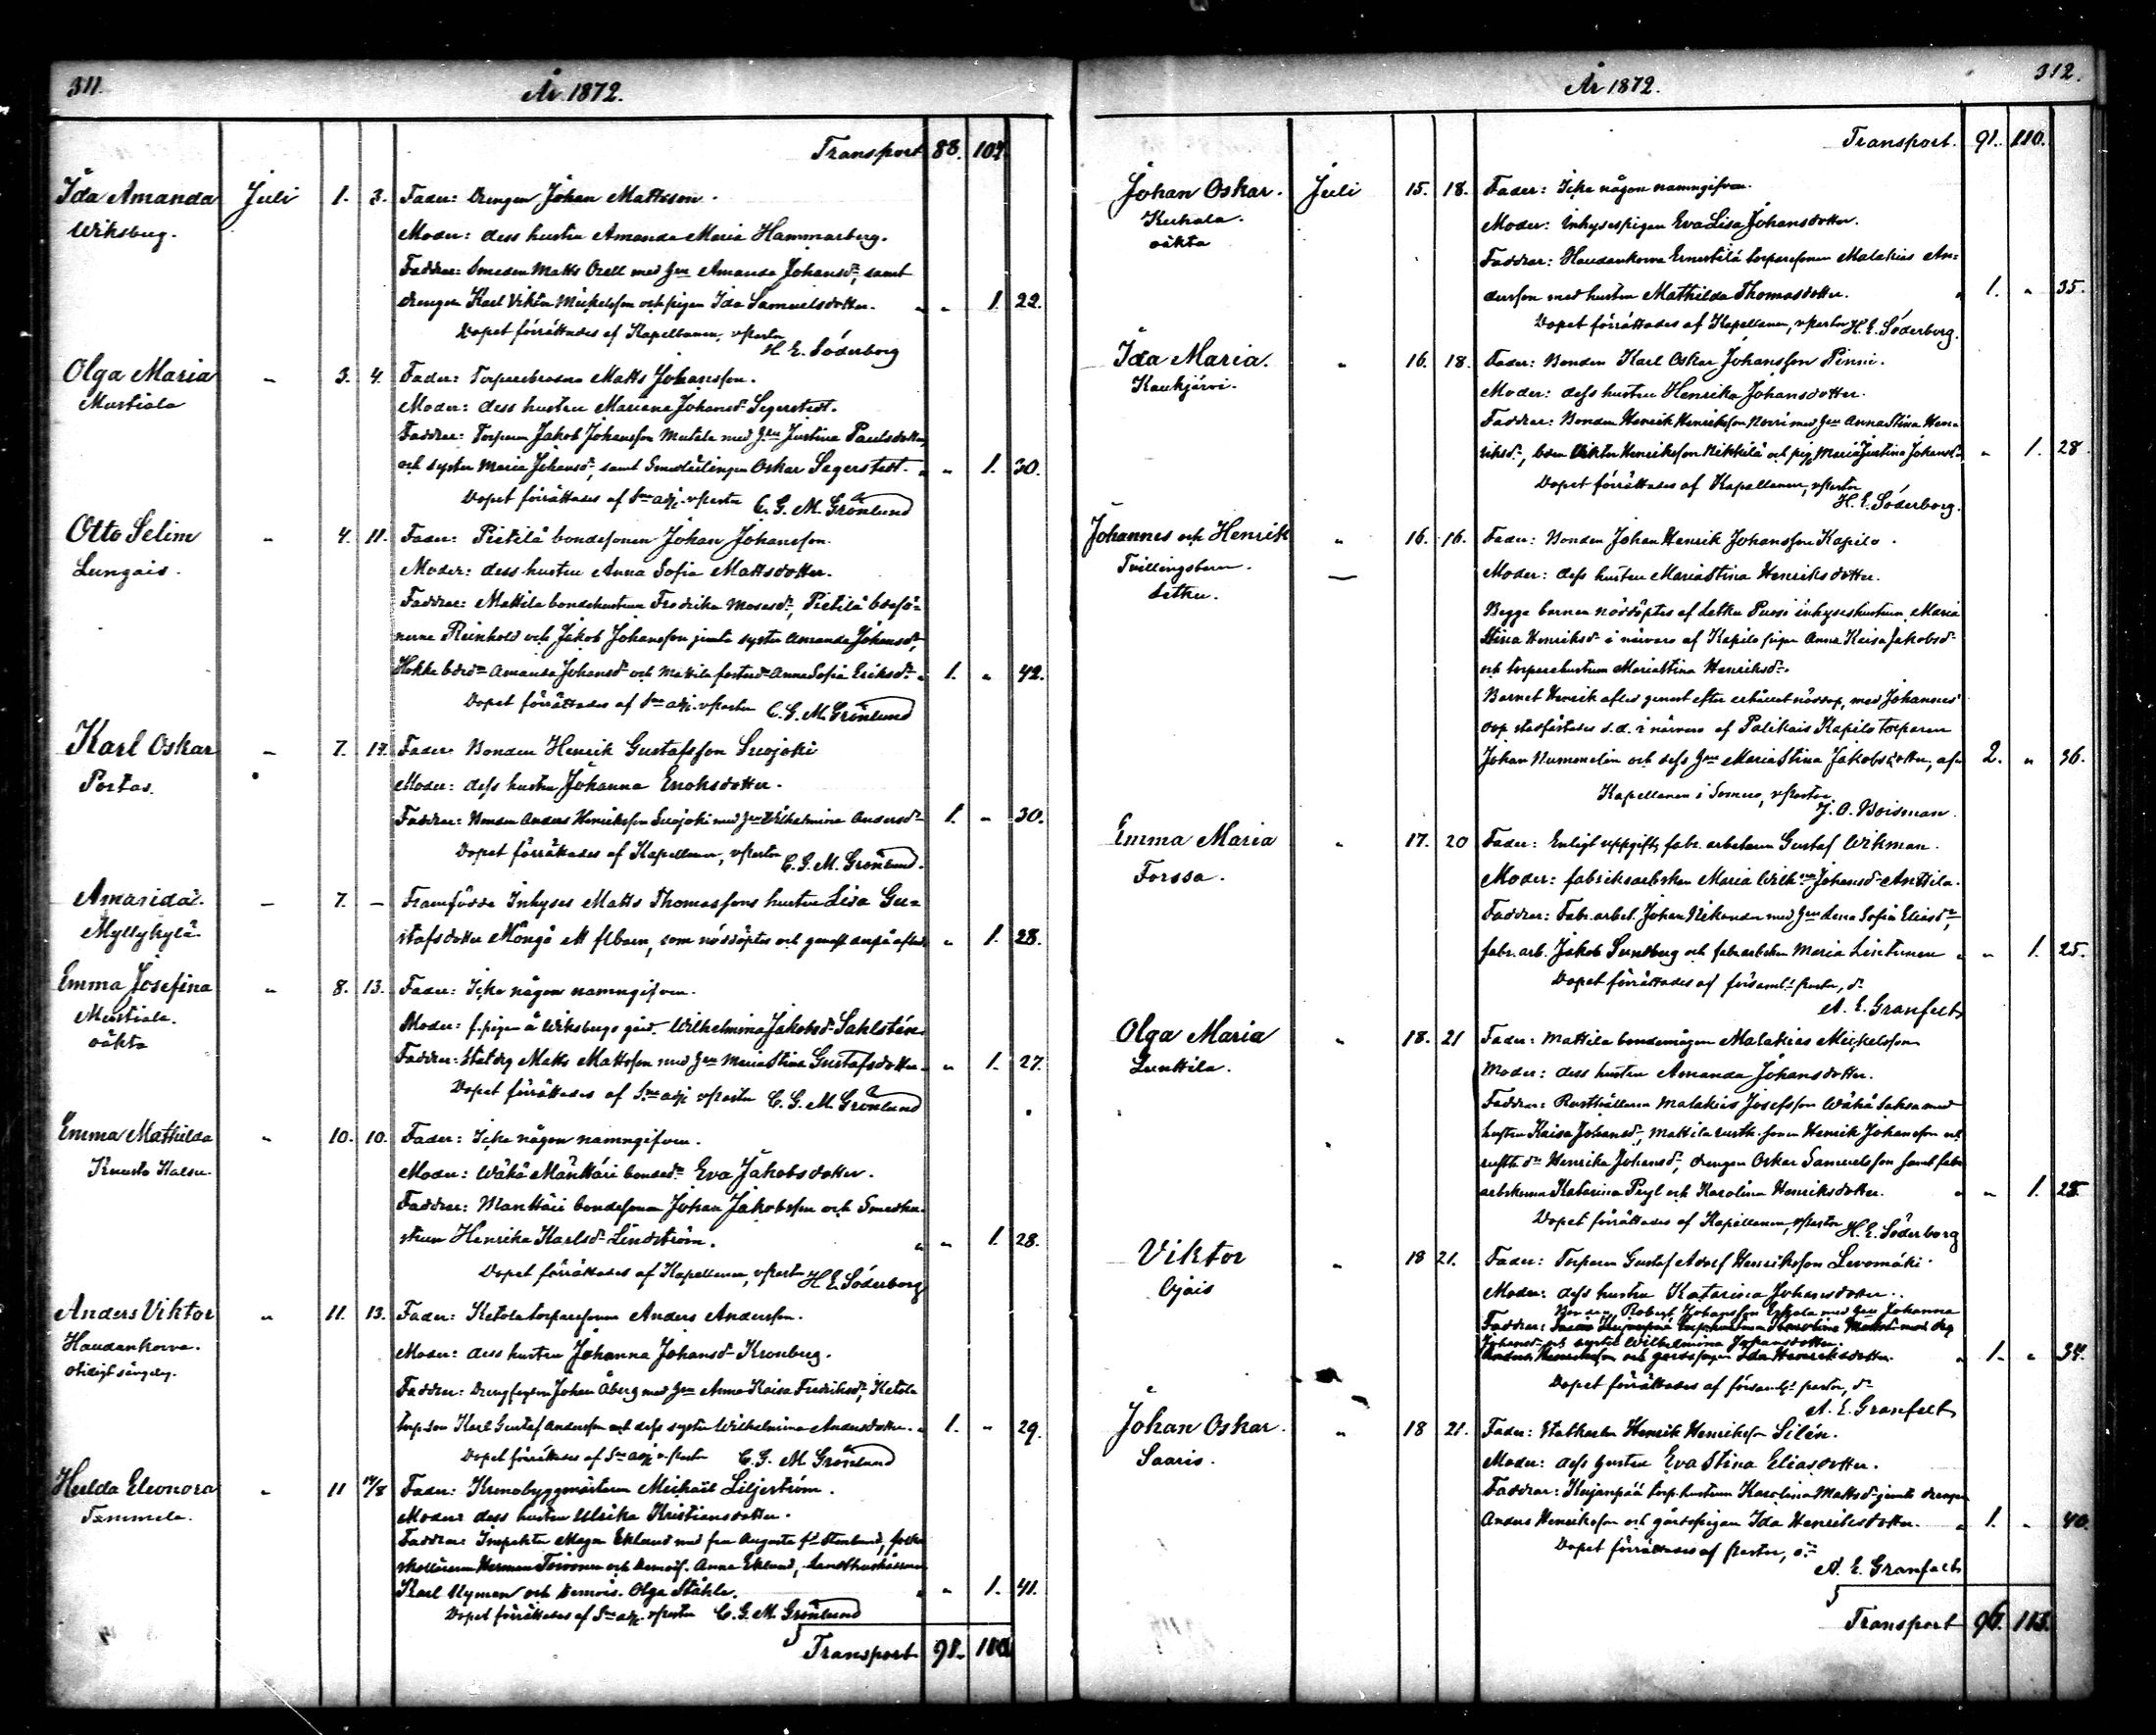 311.
År 1872.
Transport 88. 104
Ida Amanda Juli 1. 3. Fader: Drengen Johan Mattsson.
Wiksberg. Moder: dess hustru Amanda Maria Hammarberg.
Faddrar: Smeden Matts Orell med h:u Amanda Johansd:r, samt
drengen Karl Viktor Mickelsson och pigan Ida Samuelsdotter. " " 1. 22.
Dopet förrättades af Kapellanen, v.Pastor
H. E. Söderborg
Olga Maria " 3. 4. Fader: Torparebrodren Matts Johansson.
Mustiala Moder: dess hustru Mariana Johansd:r Segerstedt.
Faddrar: Torparen Jakob Johansson Mutila med h:u Justina Paulsdotter,
och syster Maria Johansd:r, samt Smedlärlingen Oskar Segerstedt. " " 1. 30.
Dopet förrättades af S:ne adj. v.Pastor C. G. M. Grönlund
Otto Selim " 4. 11. Fader: Pietilä bondesonen Johan Johansson.
Lungais. Moder: dess hustru Anna Sofia Mattsdotter.
Faddrar: Mattila bondehustrun Fredrika Mosesd:r, Pietilä bdesö-
nerne Reinhold och Jakob Johansson jemte syster Amanda Johansd:r,
Hokka bded:r Amanda Johansd:r och Mattila fosterd:r Anna Sofia Eriksd:r " 1. " 42.
Dopet förrättades af S:ne adj. v.Pastor C. G. M. Grönlund
Karl Oskar " 7. 17. Fader: Bonden Henrik Gustafsson Suojoki
Portas. Moder: dess hustru Johanna Enoksdotter.
Faddrar: Bonden Anders Henriksson Suojoki med h:u Wilhelmina Andersd:r 1. " 30.
Dopet förrättades af Kapellanen, v.Pastor C. G. M. Grönlund.
Amarida. " 7. " Framfödde Inhyses Matts Thomassons hustru Lisa Gu-
Myllykylä stafsdotter Möngö ett flbarn, som nöddöptes och genast derpå afled " 1. 28.
Emma Josefina " 8. 13. Fader: Icke någon namngifven.
Mustiala. Moder: f. pigan å Wiksbergs gård. Wilhelmina Jakobsd:r Sahlstén.
oäkta Faddrar: Statdrg Matts Mattsson med h:u Maria Stina Gustafsdotter. " 1. 27.
Dopet förrättades af S:ne adj v.Pastor C. G. M. Grönlund
Emma Mathilda " 10. 10. Fader: Icke någon namngifven.
Kuusto Kalsu. Moder: Wähä Mänttäri bonded:r Eva Jakobsdotter.
Faddrar: Mänttäri bondesonen Johan Jakobsson och Smedhu-
strun Henrika Karlsd:r Lindström. " " 1. 28.
Dopet förrättades af Kapellanen, v.Pastor H. E. Söderborg
Anders Viktor " 11. 13. Fader: Ketola torparesonen Anders Andersson.
Haudankorva. Moder: dess hustru Johanna Johansd:r Kronberg.
otidigt sängelag. Faddrar: Drengfogden Johan Åberg med h:u Anna Kaisa Fredriksd:r, Ketola
torp.son Karl Gustaf Andersson och dess syster Wilhelmina Andersdotter. " 1. " 29.
Dopet förrättades af S:ne adj. v.Pastor C. G. M. Grönlund
Hulda Eleonora " 11 14/8 Fader: Kronobyggmästaren Mickael Liljeström.
Tammela. Moder: dess hustru Ulrika Kristiansdotter.
Faddrar: Inspektor Magn Eklund med fru Augusta f:d Stenlund, folk-
skolläraren Herman Toivonen och demois. Anna Eklund, Landthushållaren
Karl Nyman och demois. Olga Ståhle. " " 1. 41.
Dopet förrättades af S:ne adj. v.Pastor C. G. M. Grönlund
Transport 91. 110.
År 1872.
312.
Transport. 91. 110.
Johan Oskar. Juli 15. 18. Fader: Icke någon namngifven.
Kuhala. Moder: Inhysespigan Eva Lisa Johansdotter.
oäkta Faddrar: Haudankorva Ernestilä torparesonen Malakias An-
dersson med hustru Mathilda Thomasdotter. " 1. " 35.
Dopet förrättades af Kapellanen, v.Pastor H. E. Söderborg.
Ida Maria. " 16. 18. Fader: Bonden Karl Oskar Johansson Pinni.
Kaukjärvi. Moder: dess hustru Henrika Johansdotter.
Faddrar: Bonden Henrik Henriksson Norri med h:u Anna Stina Hen-
riksd:r, bden Viktor Henriksson Nikkilä och pig. Maria Justina Johansd:r " 1. 28
Dopet förrättades af Kapellanen, v.Pastor
H. E. Söderborg.
Johannes och Henrik " 16. 16. Fader: Bonden Johan Henrik Johansson Kapilo.
Tvillingsbarn. Moder: dess hustru Maria Stina Henriksdotter.
Letku. Begge barnen nöddöptes af Letku Pussi inhyseshustrun Maria
Stina Henriksd:r i närvaro af Kapilo pigan Anna Kaisa Jakobsd:r
och torparehustrun Maria Stina Henriksd:r.
Barnet Henrik afled genast efter erhållet nöddop, med Johannes'
dop stadfästades s.d. i närvaro af Palikais Kapilo torparen
Johan Nummelin och dess h:u Maria Stina Jakobsdotter, af 2. " 36.
Kapellanen i Somero, v.Pastor
J. O. Boisman.
Emma Maria " 17. 20 Fader: Enligt uppgift, fabr. arbetaren Gustaf Wikman.
Forssa. Moder: fabriksarbeterskan Maria Wilh:na Johansd:r Anttila.
Faddrar: Fabr.arbet. Johan Nikander med h:u Lena Sofia Eliasd:r,
fabr.arb. Jakob Sundberg och fabr.arbskan Maria Listunen " " 1. 25.
Dopet förrättades af församl:s Pastor, d:r
A. E. Granfelt
Olga Maria " 18. 21 Fader: Mattila bondemågen Malakias Mickelsson
Lunttila. Moder: dess hustru Amanda Johansdotter.
Faddrar: Rusthållaren Malakias Josefsson Wähä Saksa med
hustru Kaisa Johansd:r, Mattila rusth.sonen Henrik Johansson och
rusth.d:r Henrika Johansd:r, drengen Oskar Samuelsson samt fabr.
arbskorna Katarina Peyl och Karolina Henriksdotter. " " 1. 28.
Dopet förrättades af Kapellanen, v.Pastor H. E. Söderborg
Viktor " 18 21. Fader: Torparen Gustaf Adolf Henriksson Levomäki.
Ojais Moder: dess hustru Katarina Johansdotter.
Bonden Robert Johansson Eskola med h:u Johanna
Faddrar: Kujanpää torp.hustrun Karolina Mattsd:r med drg
Johansd:r och syster Wilhelmina Johansdotter.
Anders Henriksson och gårdspigan Ida Henriksdotter. " 1. " 34.
Dopet förrättades af församl:s pastor, d:r
A. E. Granfelt
Johan Oskar. " 18 21. Fader: Statkarlen Henrik Henriksson Silén.
Saaris. Moder: dess hustru Eva Stina Eliasdotter.
Faddrar: Kujanpää torp.hustrun Karolina Mattsd:r jemte drengen
Anders Henriksson och gårdspigan Ida Henriksdotter. " 1. " 40.
Dopet förrättades af Pastor, d:r
A. E. Granfelt
Transport 96. 113.